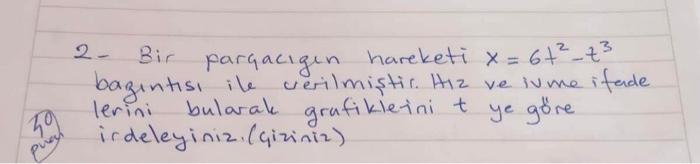 2- Bir parçacığın hareketi x = 6t² - t³
bağıntısı ile verilmiştir. Hız ve ivme ifade
lerini bularak grafiklerini t ye göre
irdeleyiniz. (Çiziniz)
puan